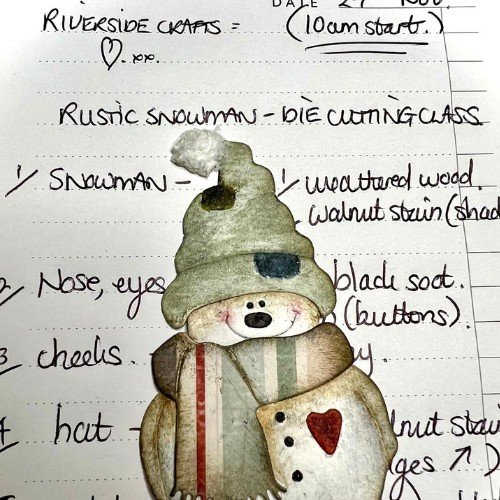 DATE 29 Nov.
RIVERSIDE CRAFTS = (10am start.)
♡.xx.
RUSTIC SNOWMAN - DIE CUTTING CLASS
1/ SNOWMAN - 1/ weathered wood.
walnut stain (shad
2/ Nose, eyes black soot.
(buttons).
3 cheeks.
4 hat - lnut stain
ges ↗ )